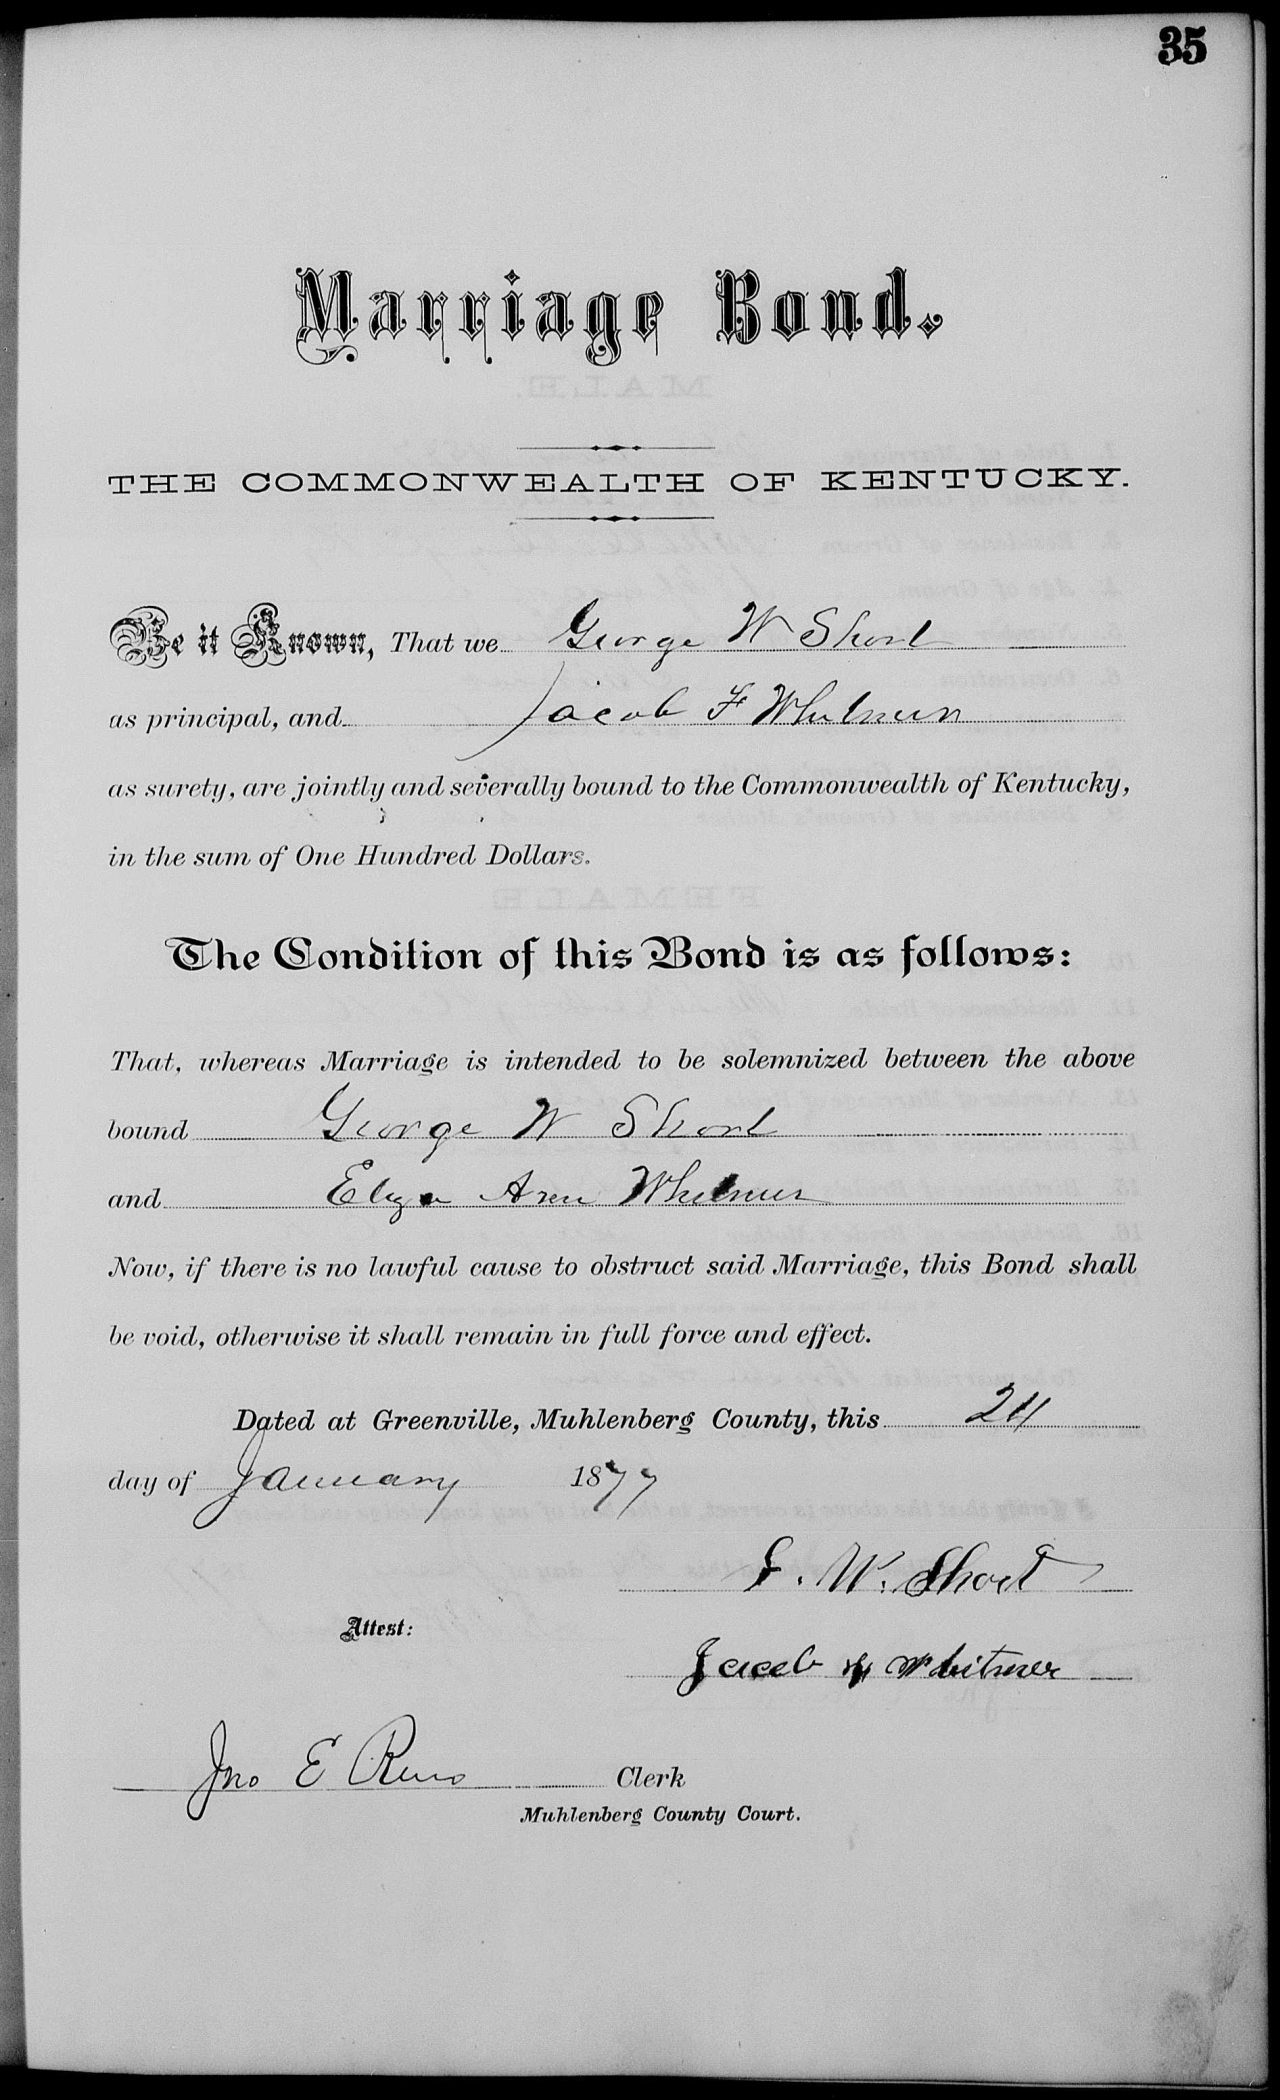 35
Marriage Bond.
THE COMMONWEALTH OF KENTUCKY.
Be it Known, That we George W Short
as principal, and Jacob F Whitmer
as surety, are jointly and severally bound to the Commonwealth of Kentucky,
in the sum of One Hundred Dollars.
The Condition of this Bond is as follows:
That, whereas Marriage is intended to be solemnized between the above
bound George W Short
and Eliza Ann Whitmer
Now, if there is no lawful cause to obstruct said Marriage, this Bond shall
be void, otherwise it shall remain in full force and effect.
Dated at Greenville, Muhlenberg County, this 24
day of January 1877
G. W. Short
Attest:
Jacob F Whitmer
Jno E Reno Clerk
Muhlenberg County Court.